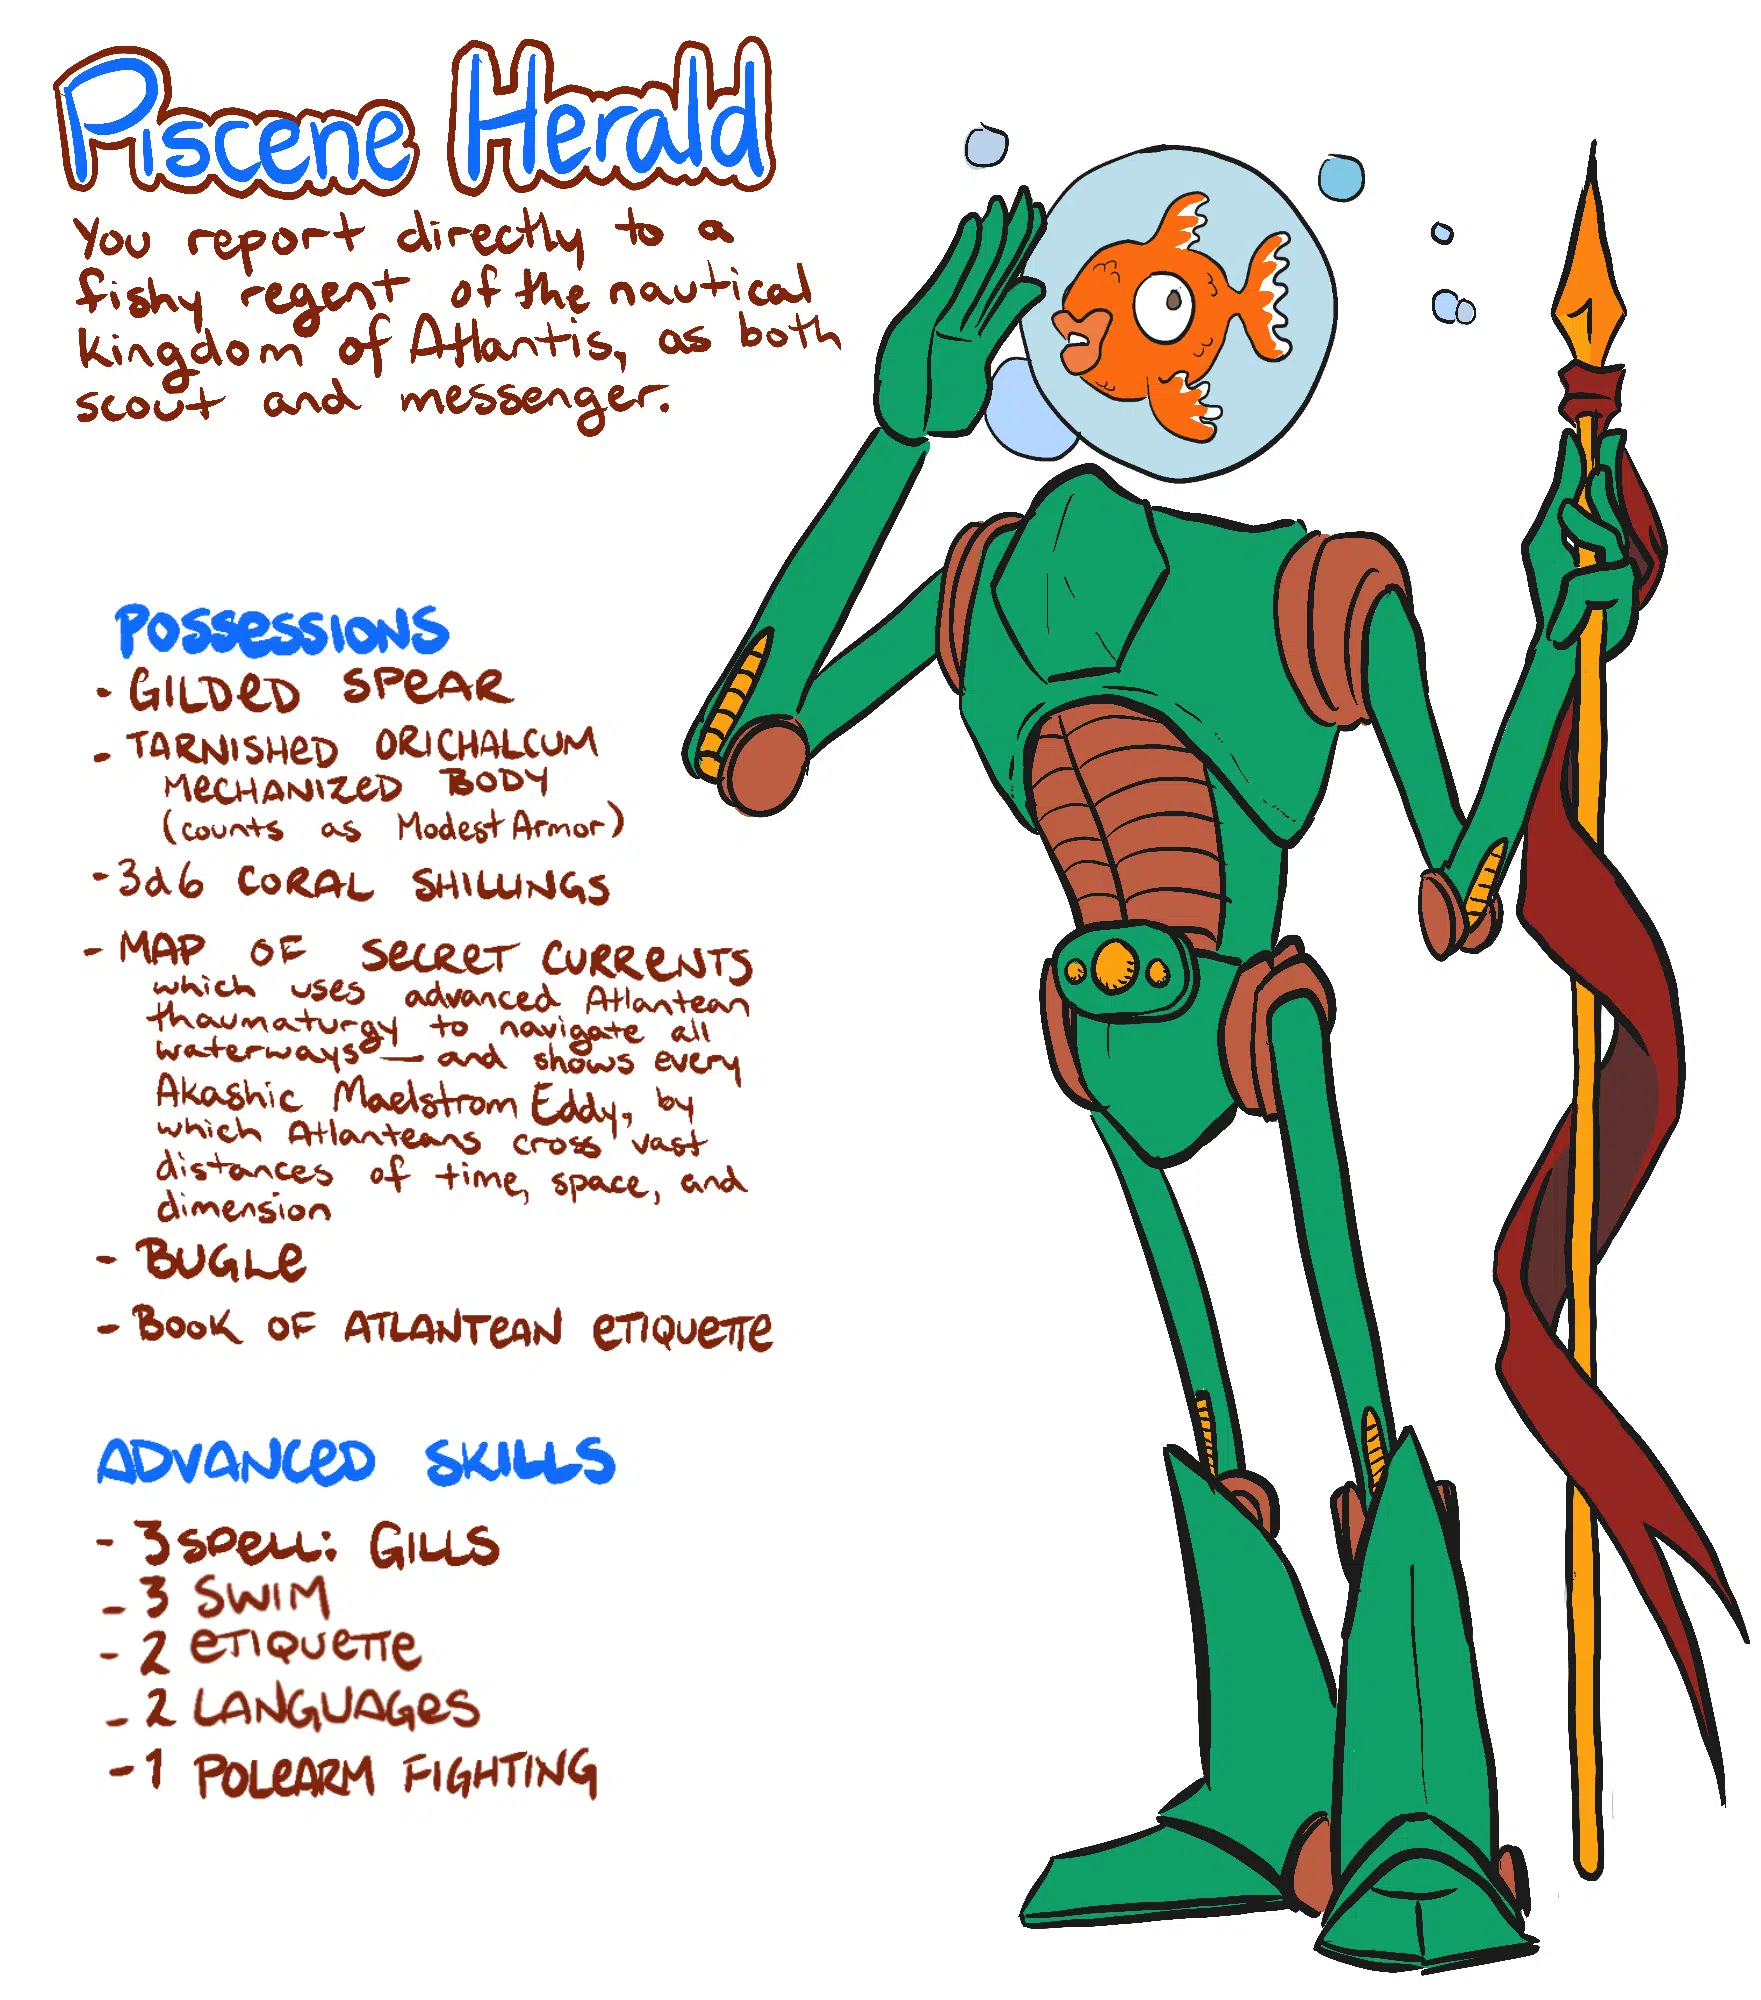 Piscene Herald
You report directly to a
fishy regent of the nautical
kingdom of Atlantis, as both
scout and messenger.
POSSESSIONS
- GILDED SPEAR
- TARNISHED ORICHALCUM
MECHANIZED BODY
(counts as Modest Armor)
- 3d6 CORAL SHILLINGS
- MAP OF SECRET CURRENTS
which uses advanced Atlantean
thaumaturgy to navigate all
waterways — and shows every
Akashic Maelstrom Eddy, by
which Atlanteans cross vast
distances of time, space, and
dimension
- BUGLE
- BOOK OF ATLANTEAN ETIQUETTE
ADVANCED SKILLS
- 3 SPELL: GILLS
- 3 SWIM
- 2 ETIQUETTE
- 2 LANGUAGES
- 1 POLEARM FIGHTING